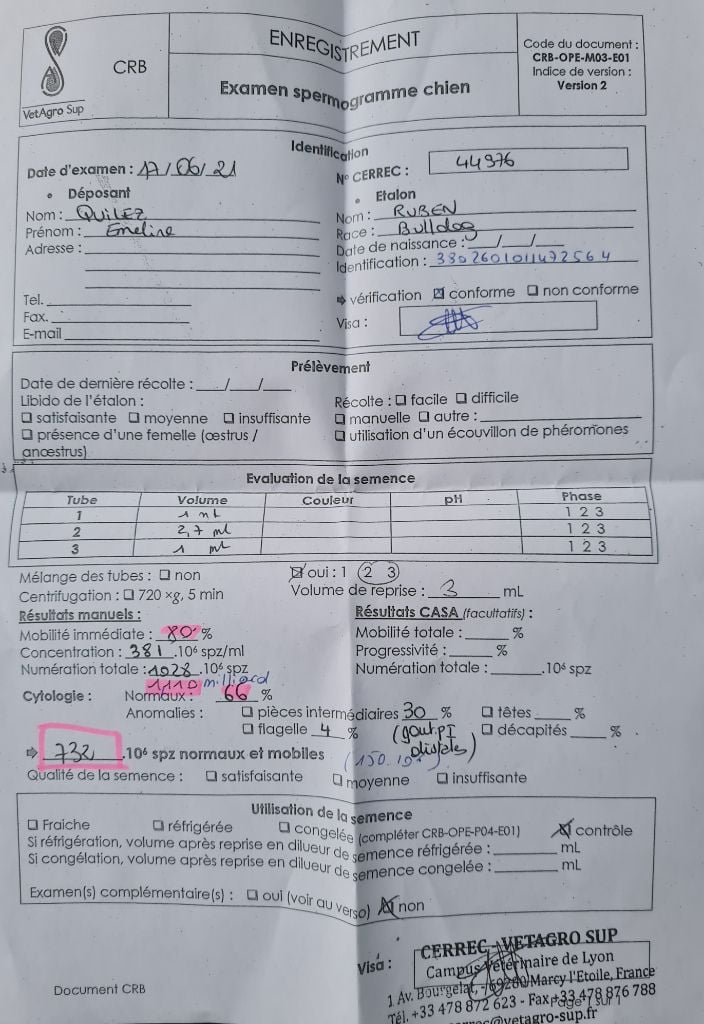 VetAgro Sup
CRB
ENREGISTREMENT
Examen spermogramme chien
Code du document :
CRB-OPE-M03-E01
Indice de version :
Version 2
Identification
Date d'examen : 17/06/21
N° CERREC : 44976
• Déposant
• Etalon
Nom : QUILEZ
Nom : RUBEN
Prénom : Emeline
Race : Bulldog
Adresse :
Date de naissance : __/__/__
Identification : 3802601011472564
Tel.
➱ vérification ☒ conforme ☐ non conforme
Fax.
Visa :
E-mail
Prélèvement
Date de dernière récolte : __/__/__
Libido de l'étalon :
Récolte : ☐ facile ☐ difficile
☐ satisfaisante ☐ moyenne ☐ insuffisante
☐ manuelle ☐ autre :
☐ présence d'une femelle (œstrus /
☐ utilisation d'un écouvillon de phéromones
anœstrus)
Evaluation de la semence
Tube Volume Couleur pH Phase
1 1 ml 1 2 3
2 2,7 ml 1 2 3
3 1 ml 1 2 3
Mélange des tubes : ☐ non ☒ oui : 1 2 3
Centrifugation : ☐ 720 ×g, 5 min Volume de reprise : 3 mL
Résultats manuels :
Résultats CASA (facultatifs) :
Mobilité immédiate : 80 %
Mobilité totale : ____ %
Concentration : 381 .10⁶ spz/ml
Progressivité : ____ %
Numération totale : 1028 .10⁶ spz
Numération totale : ____ .10⁶ spz
1110 milliard
Cytologie : Normaux : 66 %
Anomalies : ☐ pièces intermédiaires 30 % ☐ têtes ____ %
☐ flagelle 4 % (gout. PI ☐ décapités ____ %
distales)
➱ 732 .10⁶ spz normaux et mobiles
Qualité de la semence : ☐ satisfaisante ☐ moyenne ☐ insuffisante
Utilisation de la semence
☐ Fraiche ☐ réfrigérée ☐ congelée (compléter CRB-OPE-P04-E01) ☒ contrôle
Si réfrigération, volume après reprise en dilueur de semence réfrigérée : ____ mL
Si congélation, volume après reprise en dilueur de semence congelée : ____ mL
Examen(s) complémentaire(s) : ☐ oui (voir au verso) ☒ non
Visa :
CERREC - VETAGRO SUP
Campus Vétérinaire de Lyon
1 Av. Bourgelat - 69280 Marcy l'Etoile, France
Tél. +33 478 872 623 - Fax +33 478 876 788
@vetagro-sup.fr
Document CRB
Page 1 sur 1